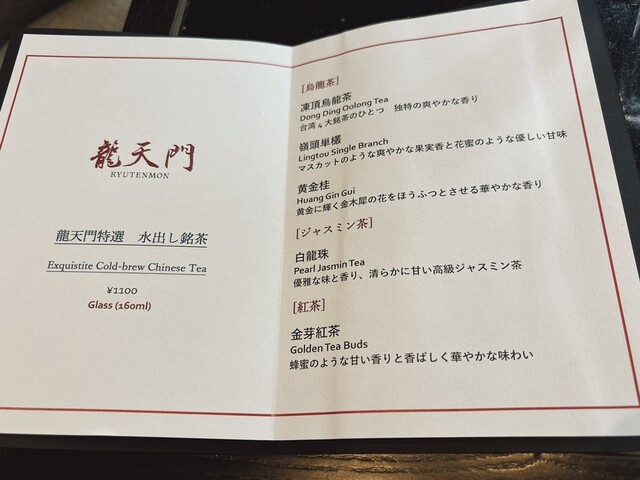 龍天門
RYUTENMON
龍天門特選　水出し銘茶
Exquistite Cold-brew Chinese Tea
¥1100
Glass (160ml)
[烏龍茶]
凍頂烏龍茶
Dong Ding Oolong Tea
台湾4大銘茶のひとつ　独特の爽やかな香り
嶺頭単欉
Lingtou Single Branch
マスカットのような爽やかな果実香と花蜜のような優しい甘味
黄金桂
Huang Gin Gui
黄金に輝く金木犀の花をほうふつとさせる華やかな香り
[ジャスミン茶]
白龍珠
Pearl Jasmin Tea
優雅な味と香り、清らかに甘い高級ジャスミン茶
[紅茶]
金芽紅茶
Golden Tea Buds
蜂蜜のような甘い香りと香ばしく華やかな味わい